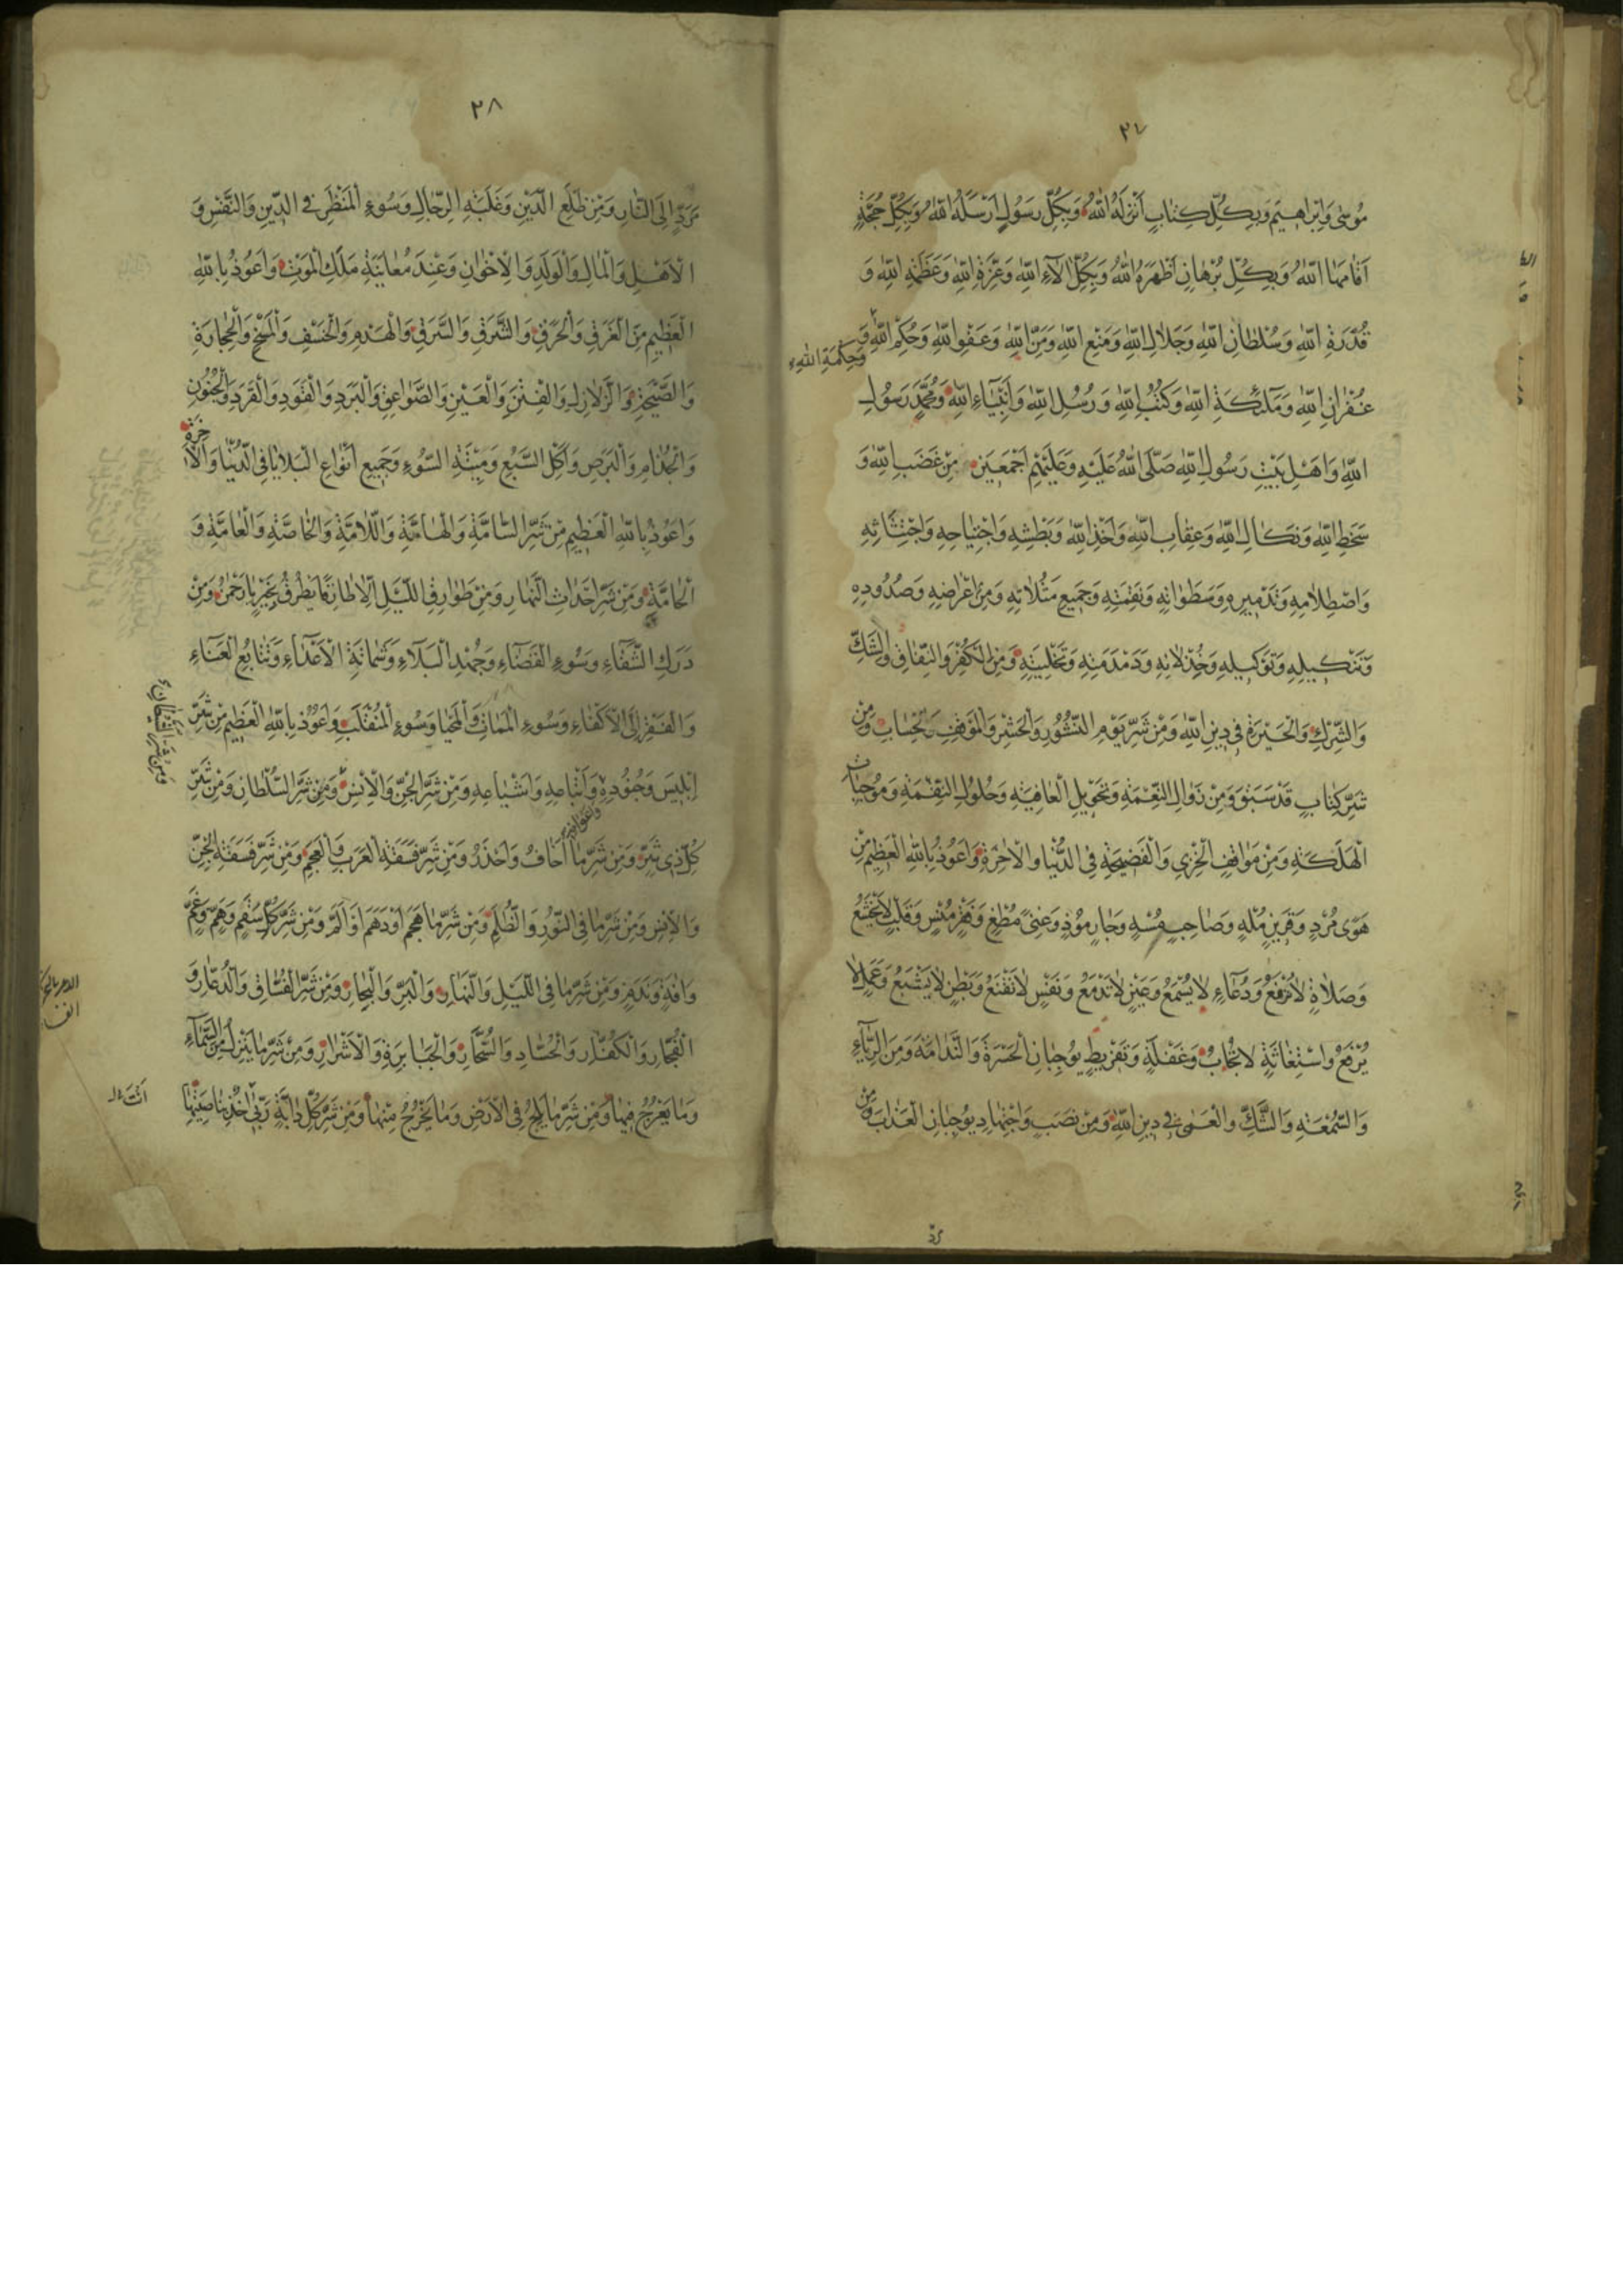 ٢٧
مُوسٰى وَاِبْرٰاهِيمَ وَبِكُلِّ كِتٰابٍ اَنْزَلَهُ اللّٰهُ وَبِكُلِّ رَسُولٍ اَرْسَلَهُ اللّٰهُ وَبِكُلِّ حُجَّةٍ
اَقٰامَهَا اللّٰهُ وَبِكُلِّ بُرْهٰانٍ اَظْهَرَهُ اللّٰهُ وَبِكُلِّ اٰلٰاءِ اللّٰهِ وَعِزَّةِ اللّٰهِ وَعَظَمَةِ اللّٰهِ وَ
قُدْرَةِ اللّٰهِ وَسُلْطٰانِ اللّٰهِ وَجَلٰالِ اللّٰهِ وَمَنْعِ اللّٰهِ وَمَنِّ اللّٰهِ وَعَفْوِ اللّٰهِ وَحُكْمِ اللّٰهِ وَ
وَحِكْمَةِ اللّٰهِ
غُفْرٰانِ اللّٰهِ وَمَلٰئِكَةِ اللّٰهِ وَكُتُبِ اللّٰهِ وَرُسُلِ اللّٰهِ وَاَنْبِيٰاءِ اللّٰهِ وَمُحَمَّدٍ رَسُولِ
اللّٰهِ وَاَهْلِ بَيْتِ رَسُولِ اللّٰهِ صَلَّى اللّٰهُ عَلَيْهِ وَعَلَيْهِمْ اَجْمَعِينَ مِنْ غَضَبِ اللّٰهِ وَ
سَخَطِ اللّٰهِ وَنَكٰالِ اللّٰهِ وَعِقٰابِ اللّٰهِ وَاَخْذِ اللّٰهِ وَبَطْشِهِ وَاجْتِيٰاحِهِ وَاجْتِثٰاثِهِ
وَاصْطِلٰامِهِ وَتَدْمِيرِهِ وَسَطَوٰاتِهِ وَنَقِمَتِهِ وَجَمِيعِ مَثُلٰاتِهِ وَمِنْ اِعْرٰاضِهِ وَصُدُودِهِ
وَتَنْكِيلِهِ وَتَوْكِيلِهِ وَخِذْلٰانِهِ وَدَمْدَمَتِهِ وَتَخْلِيَتِهِ وَمِنَ الْكُفْرِ وَالنِّفٰاقِ وَالشَّكِّ
وَالشِّرْكِ وَالْحَيْرَةِ فِى دِينِ اللّٰهِ وَمِنْ شَرِّ يَوْمِ النُّشُورِ وَالْحَشْرِ وَالْمَوْقِفِ وَالْحِسٰابِ وَمِنْ
شَرِّ كِتٰابٍ قَدْ سَبَقَ وَمِنْ زَوٰالِ النِّعْمَةِ وَتَحْوِيلِ الْعٰافِيَةِ وَحُلُولِ النِّقْمَةِ وَمُوجِبٰاتِ
الْهَلَكَةِ وَمِنْ مَوٰاقِفِ الْخِزْىِ وَالْفَضِيحَةِ فِى الدُّنْيٰا وَالْاٰخِرَةِ وَاَعُوذُ بِاللّٰهِ الْعَظِيمِ مِنْ
هَوًى مُرْدٍ وَقَرِينٍ مُلْهٍ وَصٰاحِبٍ مُسْهٍ وَجٰارٍ مُوذٍ وَغِنًى مُطْغٍ وَفَقْرٍ مُنْسٍ وَقَلْبٍ لٰا يَخْشَعُ
وَصَلٰاةٍ لٰا تُرْفَعُ وَدُعٰاءٍ لٰا يُسْمَعُ وَعَيْنٍ لٰا تَدْمَعُ وَنَفْسٍ لٰا تَقْنَعُ وَبَطْنٍ لٰا يَشْبَعُ وَعَمَلٍ لٰا
يُرْفَعُ وَاسْتِغٰاثَةٍ لٰا تُجٰابُ وَغَفْلَةٍ وَتَفْرِيطٍ يُوجِبٰانِ الْحَسْرَةَ وَالنَّدٰامَةَ وَمِنَ الرِّيٰاءِ
وَالسُّمْعَةِ وَالشَّكِّ وَالْعَمٰى فِى دِينِ اللّٰهِ وَمِنْ نَصَبٍ وَاجْتِهٰادٍ يُوجِبٰانِ الْعَذٰابَ وَمِنْ
٢٨
مَرَدٍّ اِلَى النّٰارِ وَمِنْ ضَلَعِ الدَّيْنِ وَغَلَبَةِ الرِّجٰالِ وَسُوءِ الْمَنْظَرِ فِى الدِّينِ وَالنَّفْسِ وَ
الْاَهْلِ وَالْمٰالِ وَالْوَلَدِ وَالْاِخْوٰانِ وَعِنْدَ مُعٰايَنَةِ مَلَكِ الْمَوْتِ وَاَعُوذُ بِاللّٰهِ
الْعَظِيمِ مِنَ الْغَرَقِ وَالْحَرَقِ وَالشَّرَقِ وَالسَّرَقِ وَالْهَدْمِ وَالْخَسْفِ وَالْمَسْخِ وَالْحِجٰارَةِ
وَالصَّيْحَةِ وَالزَّلٰازِلِ وَالْفِتَنِ وَالْعَيْنِ وَالصَّوٰاعِقِ وَالْبَرَدِ وَالْقَوَدِ وَالْقَرَدِ وَالْجُنُونِ
وَالْجُذٰامِ وَالْبَرَصِ وَاَكْلِ السَّبُعِ وَمِيتَةِ السُّوءِ وَجَمِيعِ اَنْوٰاعِ الْبَلٰايٰا فِى الدُّنْيٰا وَالْاٰخِرَةِ
وَاَعُوذُ بِاللّٰهِ الْعَظِيمِ مِنْ شَرِّ السّٰامَّةِ وَالْهٰامَّةِ وَاللّٰامَّةِ وَالْخٰاصَّةِ وَالْعٰامَّةِ وَ
الْحٰامَّةِ وَمِنْ شَرِّ اَحْدٰاثِ النَّهٰارِ وَمِنْ طَوٰارِقِ اللَّيْلِ اِلّٰا طٰارِقًا يَطْرُقُ بِخَيْرٍ يٰا رَحْمٰنُ وَمِنْ
دَرَكِ الشَّقٰاءِ وَسُوءِ الْقَضٰاءِ وَجُهْدِ الْبَلٰاءِ وَشَمٰاتَةِ الْاَعْدٰاءِ وَتَتٰابُعِ الْعَنٰاءِ
وَالْفَقْرِ اِلَى الْاَكْفٰاءِ وَسُوءِ الْمَمٰاتِ وَالْمَحْيٰا وَسُوءِ الْمُنْقَلَبِ وَاَعُوذُ بِاللّٰهِ الْعَظِيمِ مِنْ شَرِّ
وَمِنْ شَرِّ الشَّيْطٰانِ
اِبْلِيسَ وَجُنُودِهِ وَاَتْبٰاعِهِ وَاَشْيٰاعِهِ وَمِنْ شَرِّ الْجِنِّ وَالْاِنْسِ وَمِنْ شَرِّ السُّلْطٰانِ وَمِنْ شَرِّ
وَاَعْوٰانِهِ
كُلِّ ذِى شَرٍّ وَمِنْ شَرِّ مٰا اَخٰافُ وَاَحْذَرُ وَمِنْ شَرِّ فَسَقَةِ الْعَرَبِ وَالْعَجَمِ وَمِنْ شَرِّ فَسَقَةِ الْجِنِّ
وَالْاِنْسِ وَمِنْ شَرِّ مٰا فِى النُّورِ وَالظُّلَمِ وَمِنْ شَرِّ مٰا هَجَمَ اَوْ دَهَمَ اَوْ اَلَمَّ وَمِنْ شَرِّ كُلِّ سَقَمٍ وَهَمٍّ وَغَمٍّ
وَاٰفَةٍ وَنَدَمٍ وَمِنْ شَرِّ مٰا فِى اللَّيْلِ وَالنَّهٰارِ وَالْبَرِّ وَالْبِحٰارِ وَمِنْ شَرِّ الْفُسّٰاقِ وَالدُّعّٰارِ وَ
الْفُجّٰارِ وَالْكُفّٰارِ وَالْحُسّٰادِ وَالسُّحّٰارِ وَالْجَبٰابِرَةِ وَالْاَشْرٰارِ وَمِنْ شَرِّ مٰا يَنْزِلُ مِنَ السَّمٰاءِ
وَمٰا يَعْرُجُ فِيهٰا وَمِنْ شَرِّ مٰا يَلِجُ فِى الْاَرْضِ وَمٰا يَخْرُجُ مِنْهٰا وَمِنْ شَرِّ كُلِّ دٰابَّةٍ رَبِّى اٰخِذٌ بِنٰاصِيَتِهٰا